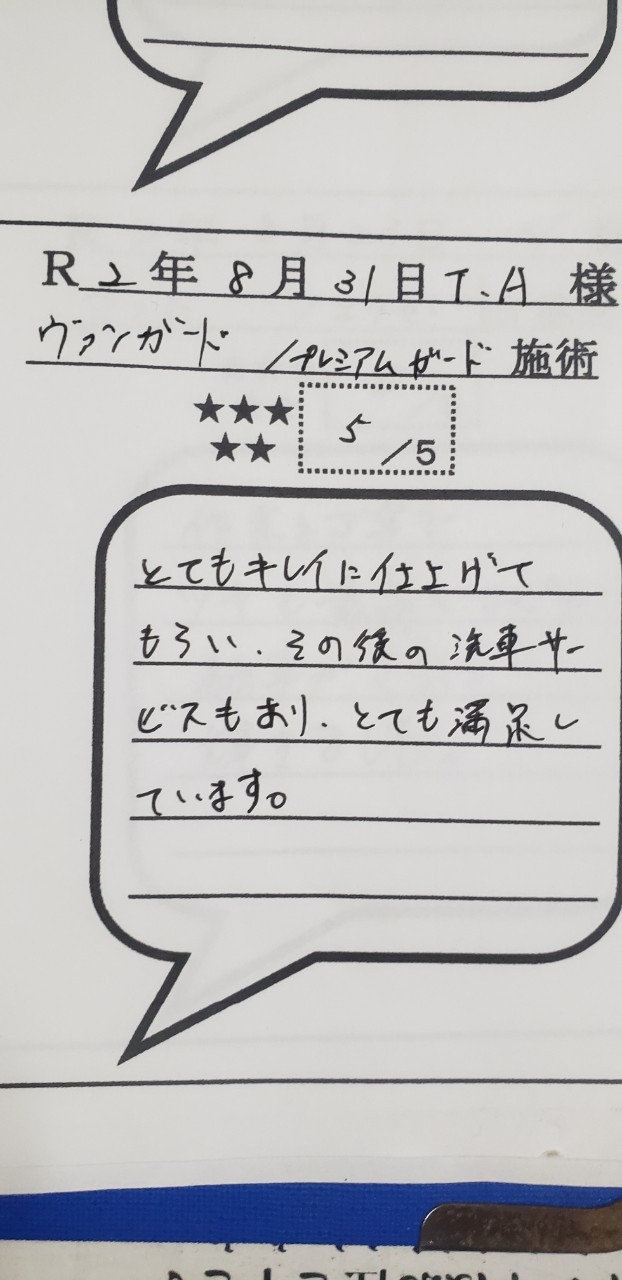 R 2年 8月 31日 T.A 様
ヴァンガード /プレミアムガード 施術
★★★
★★
5/5
とてもキレイに仕上げて
もらい、その後の洗車サー
ビスもあり、とても満足し
ています。